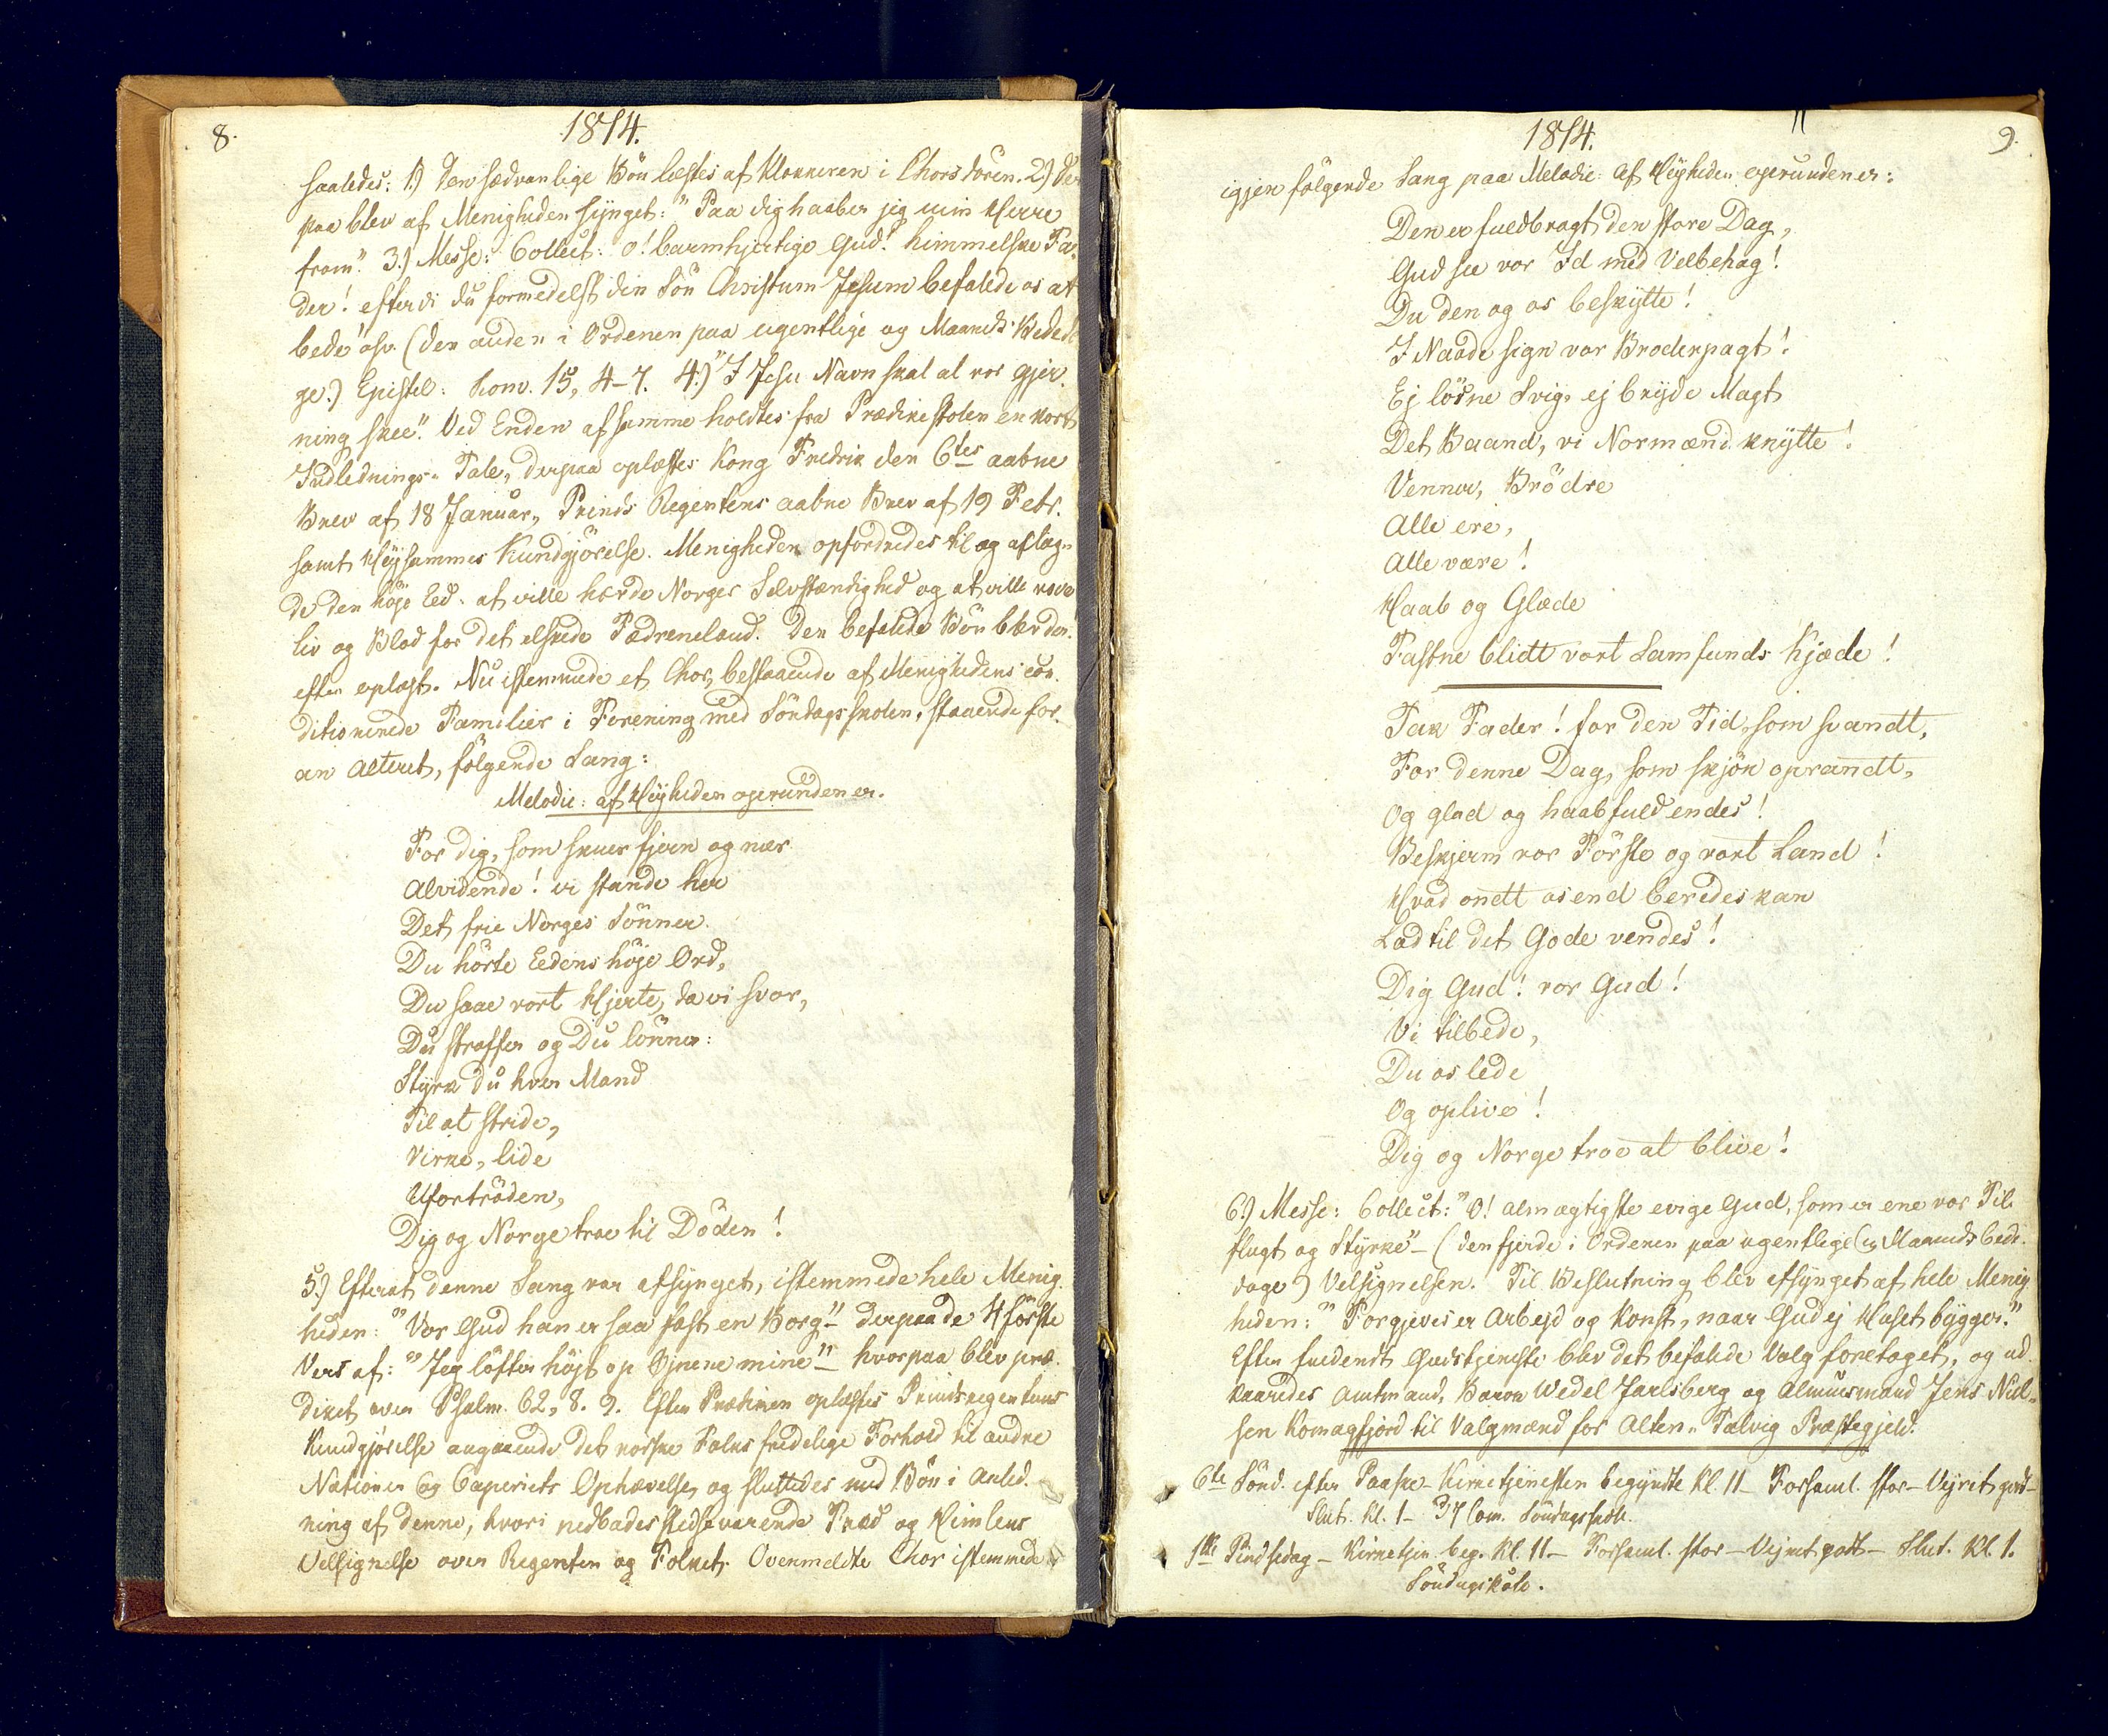 8.
1814.
saaledes: 1.) den sædvanlige Bön læstes af Klokkeren i Chorsdören. 2.) Der
paa blev af Menigheden sÿnget: "Paa dig haaber jeg min Herre
from". 3.) Messe: Collect: O! barmhjertige Gud! himmelske Fa-
der! efterdi du formedelst din Sön Christum Jesum befalede os at
bede" osv. (den anden i Ordenen paa ugentlige og Maaneds-Bededa
ge.) Epistel: Rom. 15, 4-7. 4.) "I Jesu Navn skal al vor gjer-
ning skee". Ved Enden af samme holdtes fra Prædikestolen en kort
Indlednings-Tale, derpaa oplæstes Kong Fredrik den 6tes aabne
Brev af 18 Januar, Prinds Regentens aabne Brev af 19 Febr.
samt Höjsammes Kundgjörelse. Menigheden opfordredes til og aflag-
de den höje Eed: at ville hævde Norges Selvstændighed og at ville vove
liv og Blod for det elskede Fædreneland. Den befalede Bön blev der-
efter oplæst. Nu istemmede et Chor, bestaaende af Menighedens con-
ditionerede Familier i Forening med Söndagsskolen, staaende for-
an Alteret, fölgende Sang:
Melodie: af Höjheden oprunden er.
For dig, som skuer fjern og nær
Alvidende! vi stande her
Det frie Norges Sönner.
Du hörte Eedens höje Ord,
Du saae vort Hjerte, da vi svor,
Du straffer og Du lönner:
Stÿrk du hver Mand
Til at stride,
Virke, lide
Ufortröden,
Dig og Norge troe til Döden!
5.) Efterat denne Sang var afsÿnget, istemmede hele Menig-
heden: "Vor Gud han er saa fast en Borg" - derpaa de 4 förste
Vers af: "Jeg löfter höjt op Öjnene mine" - hvorpaa blev præ-
diket over Psalm. 62, 8. 9. Efter Prædiken oplæstes Prindsregentens
Kundgjörelse angaaende det norske Folks fredelige Forhold til andre
Nationer og Caperiets Ophævelse, og sluttedes med Bön i Anled-
ning af denne, hvori nedbades stedsevarende Fred og Himlens
Velsignelse over Regenten og Folket. Ovenmeldte Chor istemmede
1814.
9.
igjen fölgende Sang paa Melodie: Af Höjheden oprunden er:
Den er fuldbragt den store Dag,
Gud see vor Id med Velbehag!
Du den og os beskÿtte!
I Naade sign vor Broderpagt!
Ej lösne Svig, ej brÿde Magt
Det Baand, vi Normænd knÿtte!
Venner, Brödre
Alle ere,
Alle være!
Haab og Glæde
Fastne blidt vort Samfunds Kjæde!
Tak Fader! for den Tid, som svandt,
For denne Dag, som skjön oprandt,
Og glad og haabfuld endes!
Beskjerm vor Förste og vort Land!
Hvad ondt os end beredes kan
Lad til det Gode vendes!
Dig Gud! vor Gud!
Vi tilbede,
Du os lede
Og oplive!
Dig og Norge troe at blive!
6.) Messe: Collect: "O! almægtigste evige Gud, som er ene vor Til-
flugt og Stÿrke" - (den fjerde i Ordenen paa ugentlige og Maaneds bede-
dage) Velsignelsen. Til Beslutning blev afsÿnget af hele Menig
heden: "Forgjeves er Arbejd og Konst, naar Gud ej Huset bÿgger."
Efter fuldendt Gudstjeneste blev det befalede Valg foretaget, og ud-
kaaredes Amtmand, Baron Wedel Jarlsberg og Almuesmand Jens Niel-
sen Komagfjord til Valgmænd for Alten-Talvig Præstegjeld.
6te Sönd. efter Paaske - Kirketjenesten begÿndte Kl. 11 - Forsaml. stor - Vejret godt -
Slut. Kl. 1 - 37 Com. Söndagsskole.
1ste Pindsedag - Kirketjen. beg. Kl. 11 - Forsaml. stor - Vejret godt - Slut. Kl. 1.
Söndagskole.